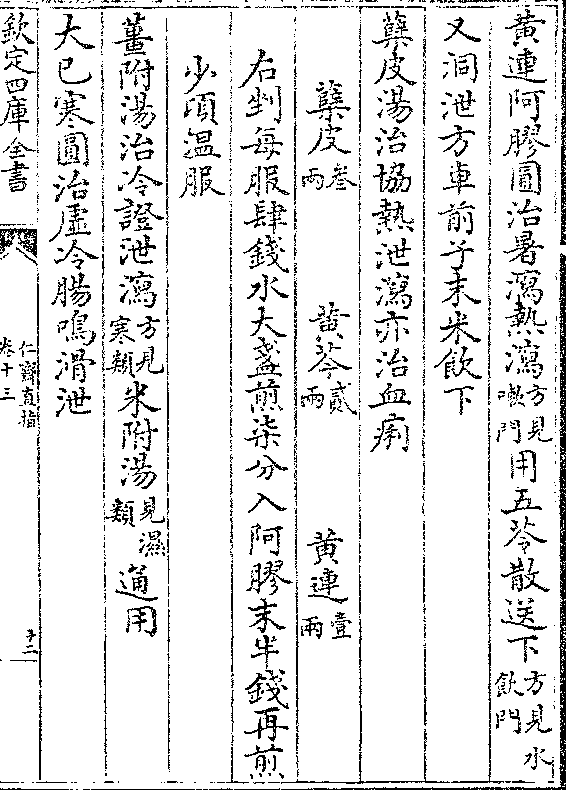 黄連阿膠圓治暑瀉熱瀉方見嗽門用五苓散送下方見水飲門
又洞泄方車前子末米飲下
蘗皮湯治協熱泄瀉亦治血痢
蘗皮叁兩 黄芩貳兩 黄連壹兩
右剉每服肆錢水大盞煎柒分入阿膠末半錢再煎
少頃温服
薑附湯治冷證泄瀉方見寒類米附湯見濕類通用
大已寒圓治虚冷腸鳴滑泄
欽定四庫全書
仁齋直指
卷十三
十二